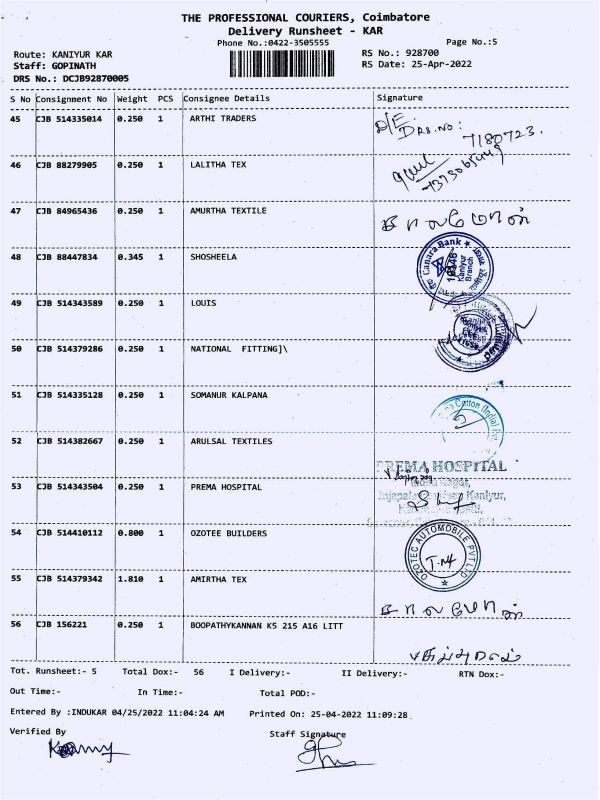 THE PROFESSIONAL COURIERS, Coimbatore
Delivery Runsheet - KAR
Phone No.:0422-3505555
Page No.:5
Route: KANIYUR KAR
RS No.: 928700
Staff: GOPINATH
RS Date: 25-Apr-2022
DRS No.: DCJB92870005
S No Consignment No Weight PCS Consignee Details Signature
45 CJB 514335014 0.250 1 ARTHI TRADERS
D/E
DRS.NO: 7180723.
46 CJB 88279905 0.250 1 LALITHA TEX
47 CJB 84965436 0.250 1 AMURTHA TEXTILE
48 CJB 88447834 0.345 1 SHOSHEELA
Canara Bank
Kaniyur
Branch
49 CJB 514343589 0.250 1 LOUIS
50 CJB 514379286 0.250 1 NATIONAL FITTING]\
51 CJB 514335128 0.250 1 SOMANUR KALPANA
Cotton (India)
52 CJB 514382667 0.250 1 ARULSAL TEXTILES
PREMA HOSPITAL
53 CJB 514343504 0.250 1 PREMA HOSPITAL
Kaniyur,
54 CJB 514410112 0.800 1 OZOTEE BUILDERS
OZOTEC AUTOMOBILE PVT LTD
55 CJB 514379342 1.810 1 AMIRTHA TEX
56 CJB 156221 0.250 1 BOOPATHYKANNAN K5 215 A16 LITT
Tot. Runsheet:- 5 Total Dox:- 56 I Delivery:- II Delivery:- RTN Dox:-
Out Time:- In Time:- Total POD:-
Entered By :INDUKAR 04/25/2022 11:04:24 AM Printed On: 25-04-2022 11:09:28
Verified By Staff Signature